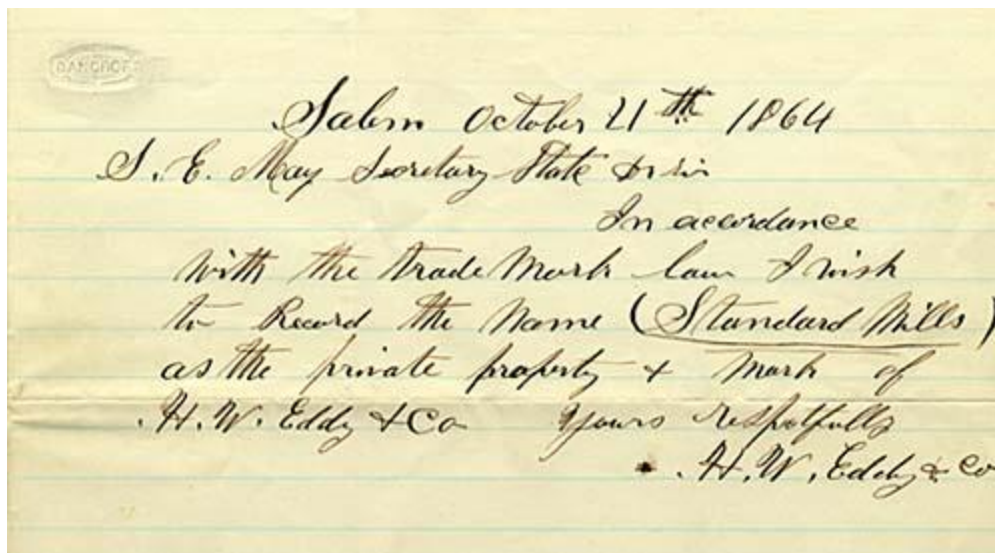 BANCROFT
Salem October 21th 1864
S. E. May Secretary State Dr sir
In accordance
with the trade Mark law I wish
to Record the Name (Standard Mills)
as the private property & Mark of
H. W. Eddy & Co Yours respetfully
H. W. Eddy & Co